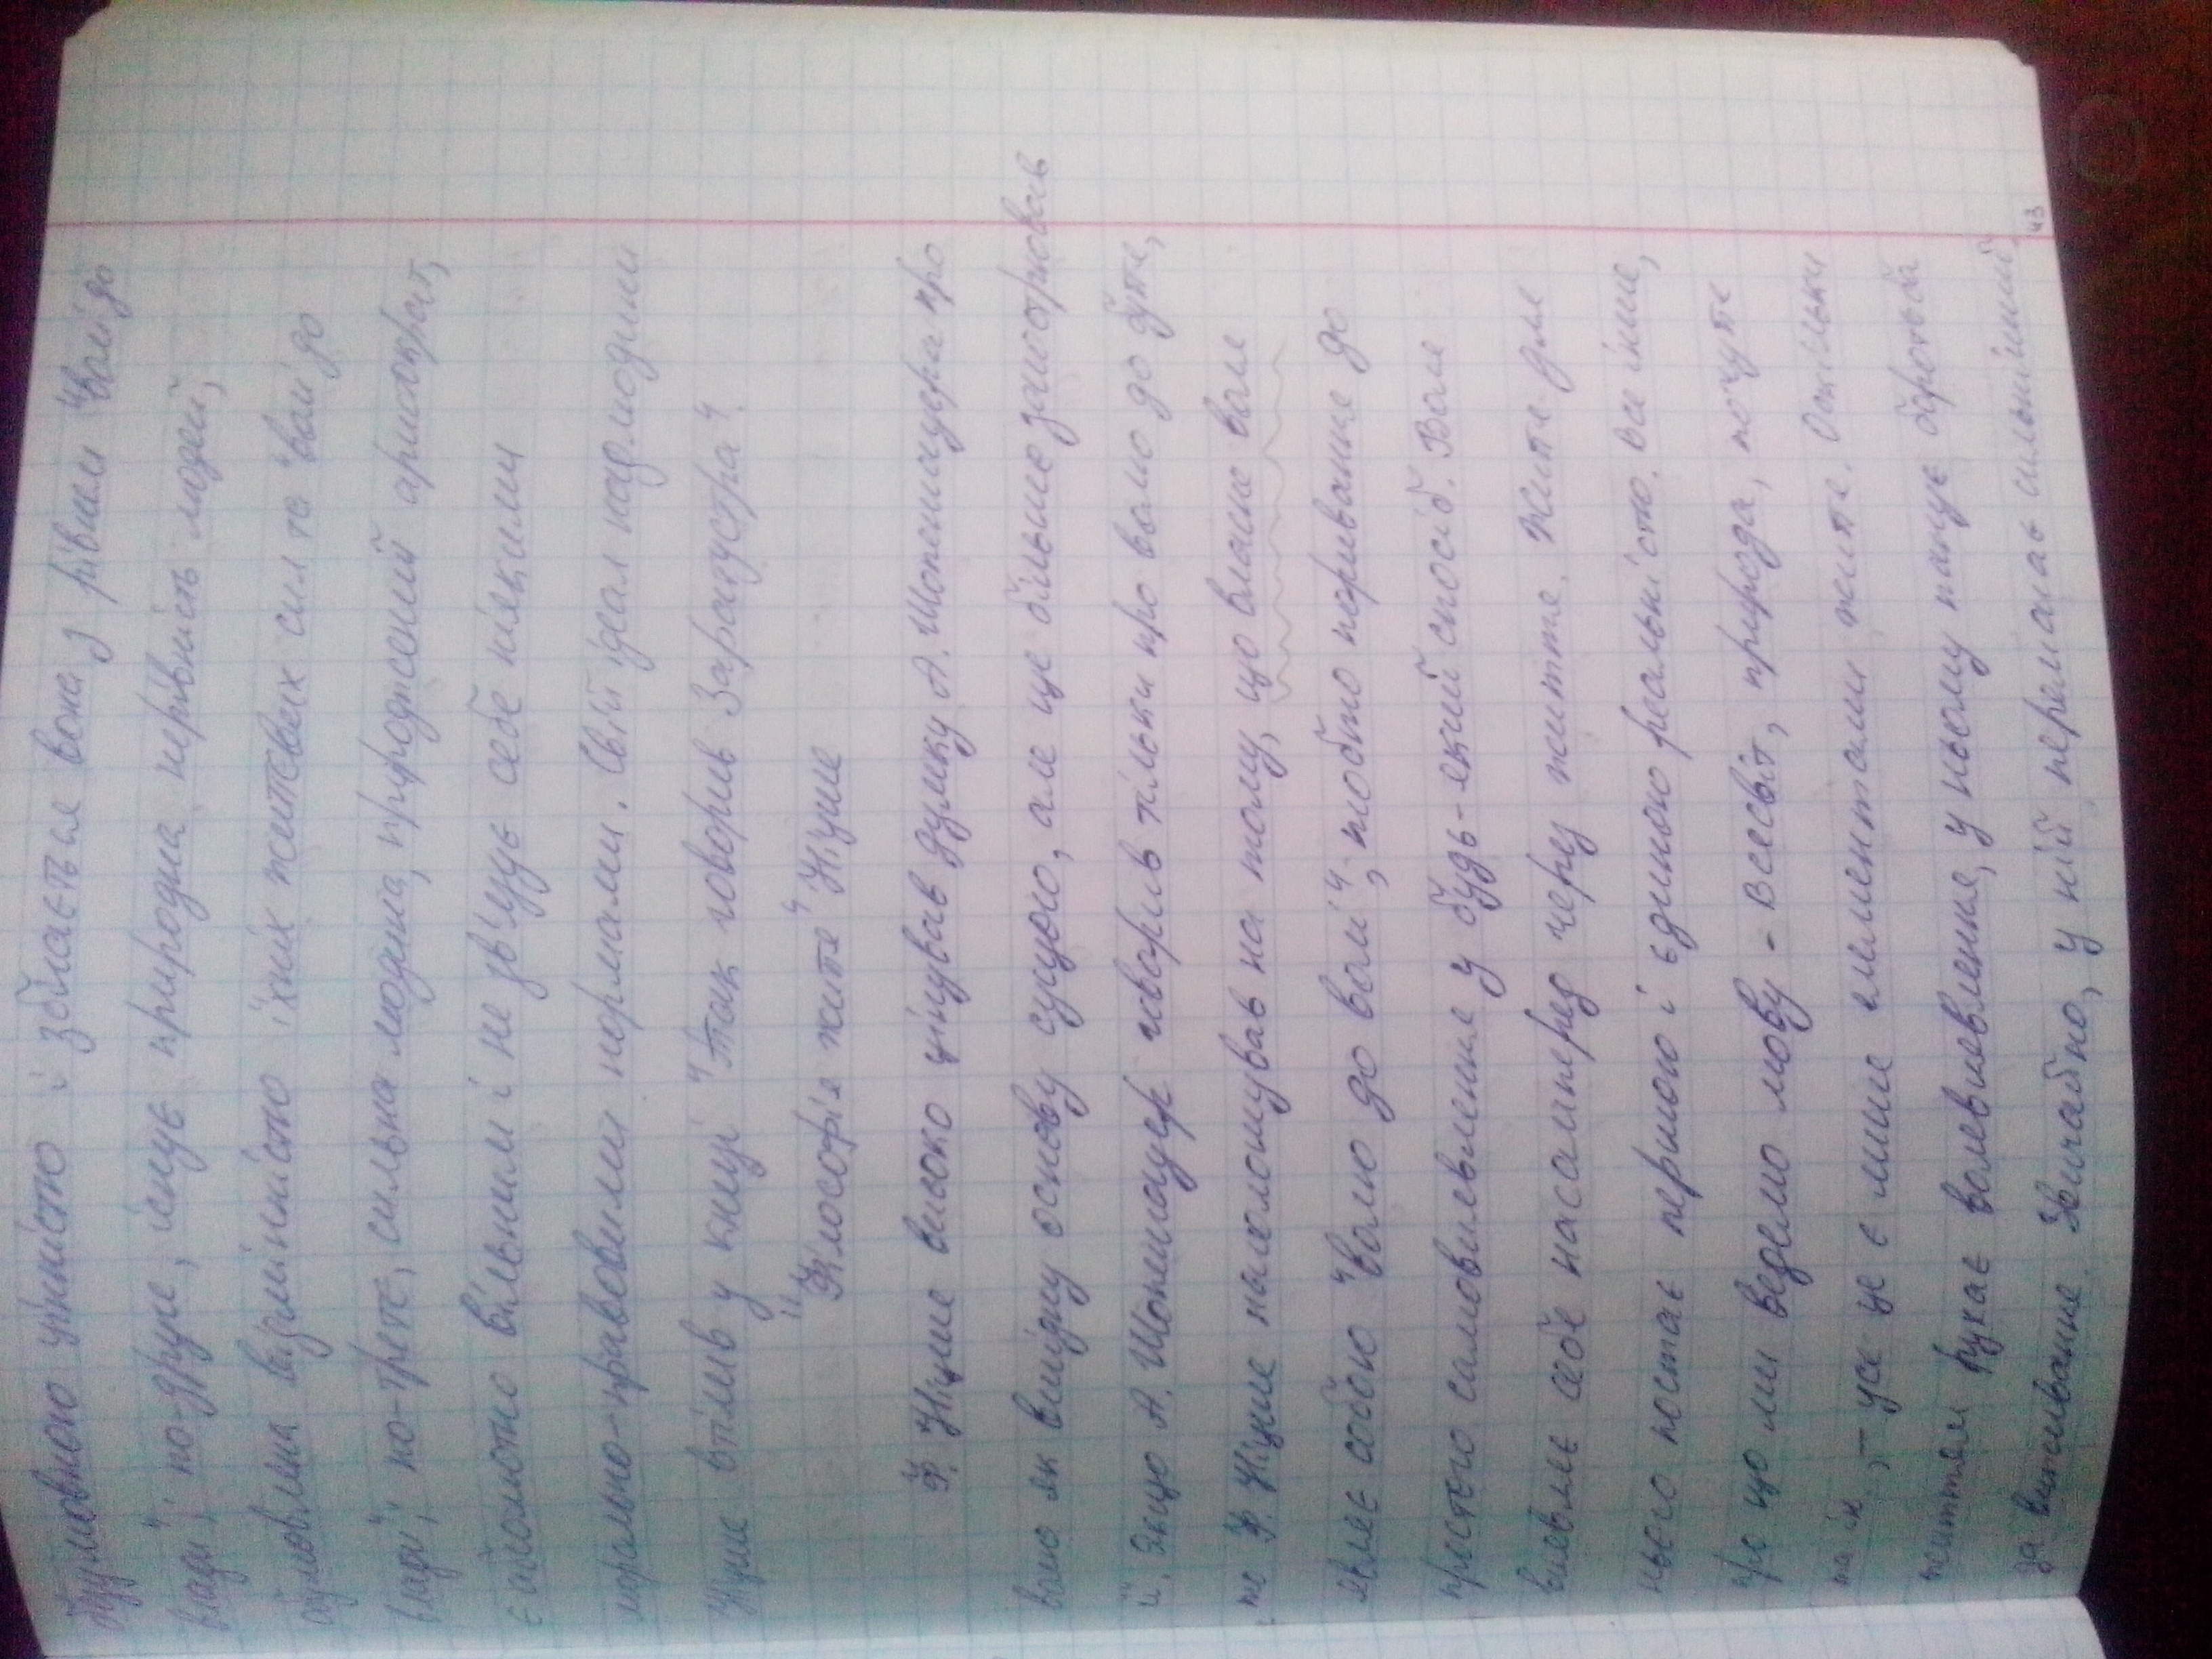 безумовною цінністю і збігається вона з рівнем "волі до
влади"; по-друге, існує природна нерівність людей,
обумовлена відмінністю їхніх життєвих сил та "волі до
влади"; по-третє, сильна людина, природжений аристократ,
є абсолютно вільним і не зв'язує себе ніякими
морально-правовими нормами. Свій ідеал надлюдини
Ніцше втілив у книзі "Так говорив Заратустра".
"Філософія життя" Ніцше
Ф. Ніцше високо цінував думку А. Шопенгауера про
волю як вихідну основу сущого, але ще більше загострював
її. Якщо А. Шопенгауер говорив тільки про волю до буття,
то Ф. Ніцше наголошував на тому, що власне воля
являє собою "волю до волі", тобто поривання до
простого самовиявлення у будь-який спосіб. Воля
виявляє себе насамперед через життя. Життя для
нього постає першою і єдиною реальністю. Все інше,
про що ми ведемо мову - Всесвіт, природа, почуття
та ін., - усе це є лише елементами життя. Оскільки
життям рухає волевиявлення, у ньому панує боротьба
за виживання. Звичайно, у ній перемагає сильніший.
43